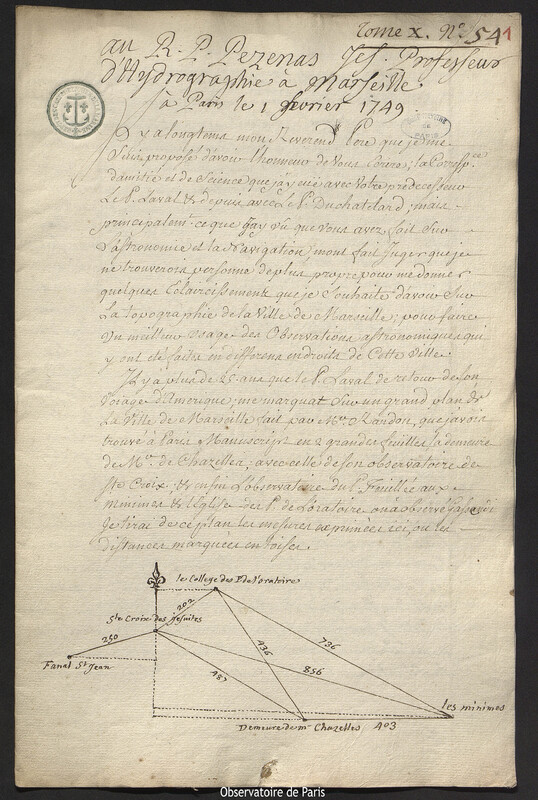 Tome X. N.º 54 1
au R. P. Pezenas Jes. Professeur
d'Hydrographie à Marseille
à Paris le 1 fevrier 1749.
Il y a longtems mon Reverend Pere que je me
suis proposé d'avoir l'honneur de vous ecrire; la Corresp.ce
d'amitié et de Science que j'ay eüe avec votre predecesseur
le P. Laval & depuis avec le P. Duchatelard; mais
principalemt. ce que j'ay vû que vous avez fait sur
l'astronomie et la Navigation, m'ont fait Juger que je
ne trouverois personne de plus propre pour me donner
quelques Eclaircissemens que je souhaite d'avoir sur
la topographie de la Ville de Marseille, pour faire
un meilleur usage des Observations astronomiques qui
y ont eté faites en differens endroits de Cette Ville.
Il y a plus de 25 ans que le P. Laval de retour de son
voiage d'Amerique, me marquat sur un grand plan de
la Ville de Marseille fait par Mr. Randon, que j'avois
trouvé à Paris Manuscript en 2 grandes feuilles la demeure
de Mr. de Chazelles, avec celle de son observatoire de
Ste Croix, & enfin l'observatoire du P. Feuillée aux
minimes & l'Eglise des P. de l'oratoire où a observé Gassendi
Je tirai de ce plan les mesures exprimées ici, ou les
distances marquées en toises.
le College des P. de l'oratoire
Ste Croix des Jesuites
202
250
736
436
Fanal St Jean
487
856
les minimes
Demeure de mr. Chazelles 403
Observatoire de Paris